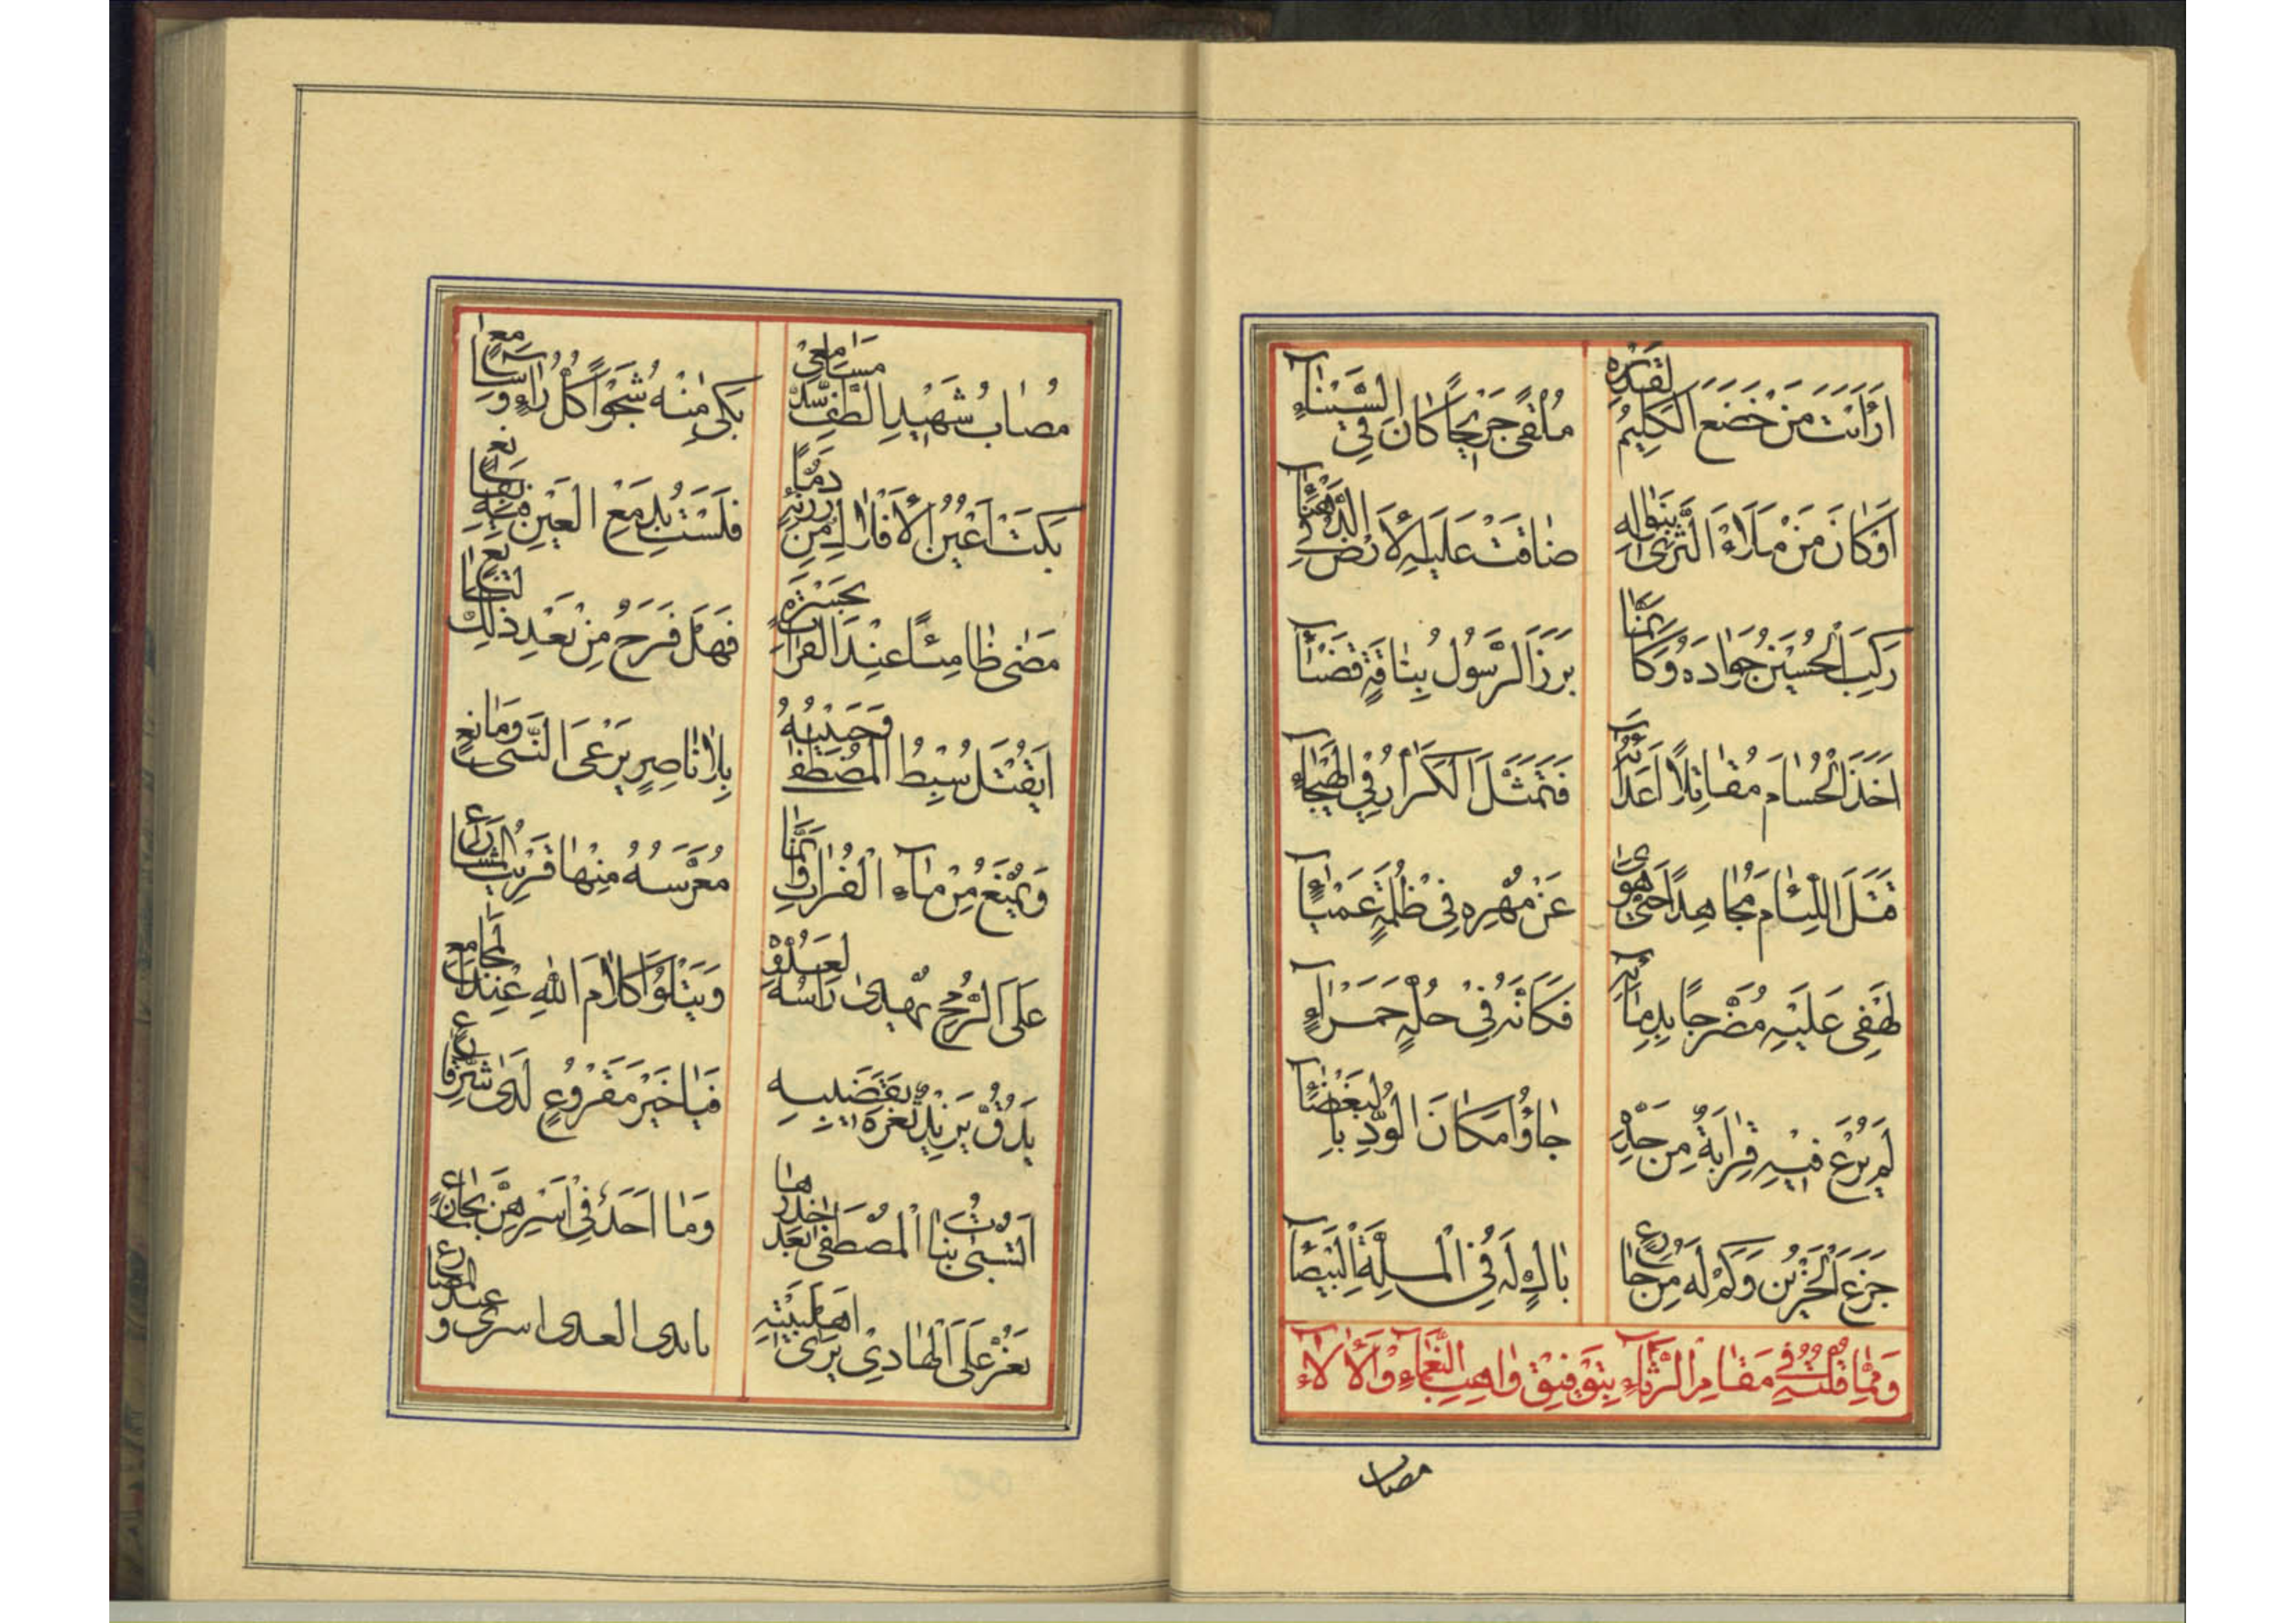 اَرَأَيْتَ مَنْ خَضَعَ الْكَلِيمُ لِقَدْرِهِ مُلْقىً جَرِيحًا كَانَ فِي السَّيْنَاءِ
اَوْ كَانَ مَنْ مَلَاءَ الثَّرىٰ بِنَوَالِهِ ضَاقَتْ عَلَيْهِ الْاَرْضُ فِي الدَّهْنَآءِ
رَكِبَ الْحُسَيْنُ جَوَادَهُ وَكَاَنَّمَا بَرَزَ الرَّسُولُ بِنَاقَةٍ قَصْنَآءِ
اَخَذَ الْحُسَامَ مُقَاتِلًا اَعْدَآئَهُ فَتَمَثَّلَ الْكَرَّارُ فِي الْهَيْجَآءِ
قَتَلَ اللِّئَامَ مُجَاهِدًا حَتّٰى هَوىٰ عَنْ مُهْرِهِ فِي ظُلْمَةٍ عَمْيَآءٍ
لَهْفِي عَلَيْهِ مُضَرَّجًا بِدِمَآئِهِ فَكَاَنَّهُ فِي حُلَّةٍ حَمْرَآءٍ
لَمْ يُرْعَ فِيهِ قِرَابَةٌ مِنْ جَدِّهِ جَاؤُا مَكَانَ الْوُدِّ بِالْبَغْضَآءِ
جَزَعَ الْحَزِينُ وَكَمْ لَهُ مِنْ جَازِعٍ بَاكٍ لَهُ فِي الْمِلَّةِ الْبَيْضَآءِ
وَمِمَّا قُلْتُهُ فِي مَقَامِ الرِّثَآءِ بِتَوْفِيقِ وَاهِبِ النَّعْمَآءِ وَالْاٰلَاءِ
مصاب
مُصَابُ شَهِيدِ الطَّفِّ سَدَّ مَسَامِعِي بَكىٰ مِنْهُ شَجْوًا كُلُّ رَاءٍ وَسَامِعٍ
بَكَتْ اَعْيُنُ الْاَفْلَاكِ مِنْ رُزْئِهِ دَمًا فَلَسْتُ بِدَمْعِ الْعَيْنِ فِيهِ بِقَانِعٍ
مَضىٰ ظَامِئًا عِنْدَ الْفُرَاتِ بِحَسْرَةٍ فَهَلْ فَرَحٌ مِنْ بَعْدِ ذٰلِكَ نَافِعٍ
اَيُقْتَلُ سِبْطُ الْمُصْطَفٰى وَحَبِيبُهُ بِلَا نَاصِرٍ يَرْعَى النَّبِيَّ وَمَانِعٍ
وَيُمْنَعُ مِنْ مَآءِ الْفُرَاتِ وَاِنَّمَا مُعَرَّسُهُ مِنْهَا قَرِيبُ الْمَشَارِعِ
عَلَى الرُّمْحِ يُهْدىٰ رَأْسُهُ لِعَدُوِّهِ وَيَتْلُوا كَلَامَ اللّٰهِ عِنْدَ الْمَجَامِعِ
يَدُقُّ يَزِيدٌ ثَغْرَهُ بِقَضِيبِهِ فَيَا خَيْرَ مَقْرُوعٍ لَدىٰ شَرِّ قَارِعٍ
اَتُسْبىٰ بَنَاتُ الْمُصْطَفىٰ بَعْدَ خِدْرِهَا وَمَا اَحَدٌ فِي اَسْرِهِنَّ بِجَازِعٍ
يَعُزُّ عَلَى الْهَادِي يَرىٰ اَهْلَ بَيْتِهِ بايدى العدى اسرى وعند المصارع